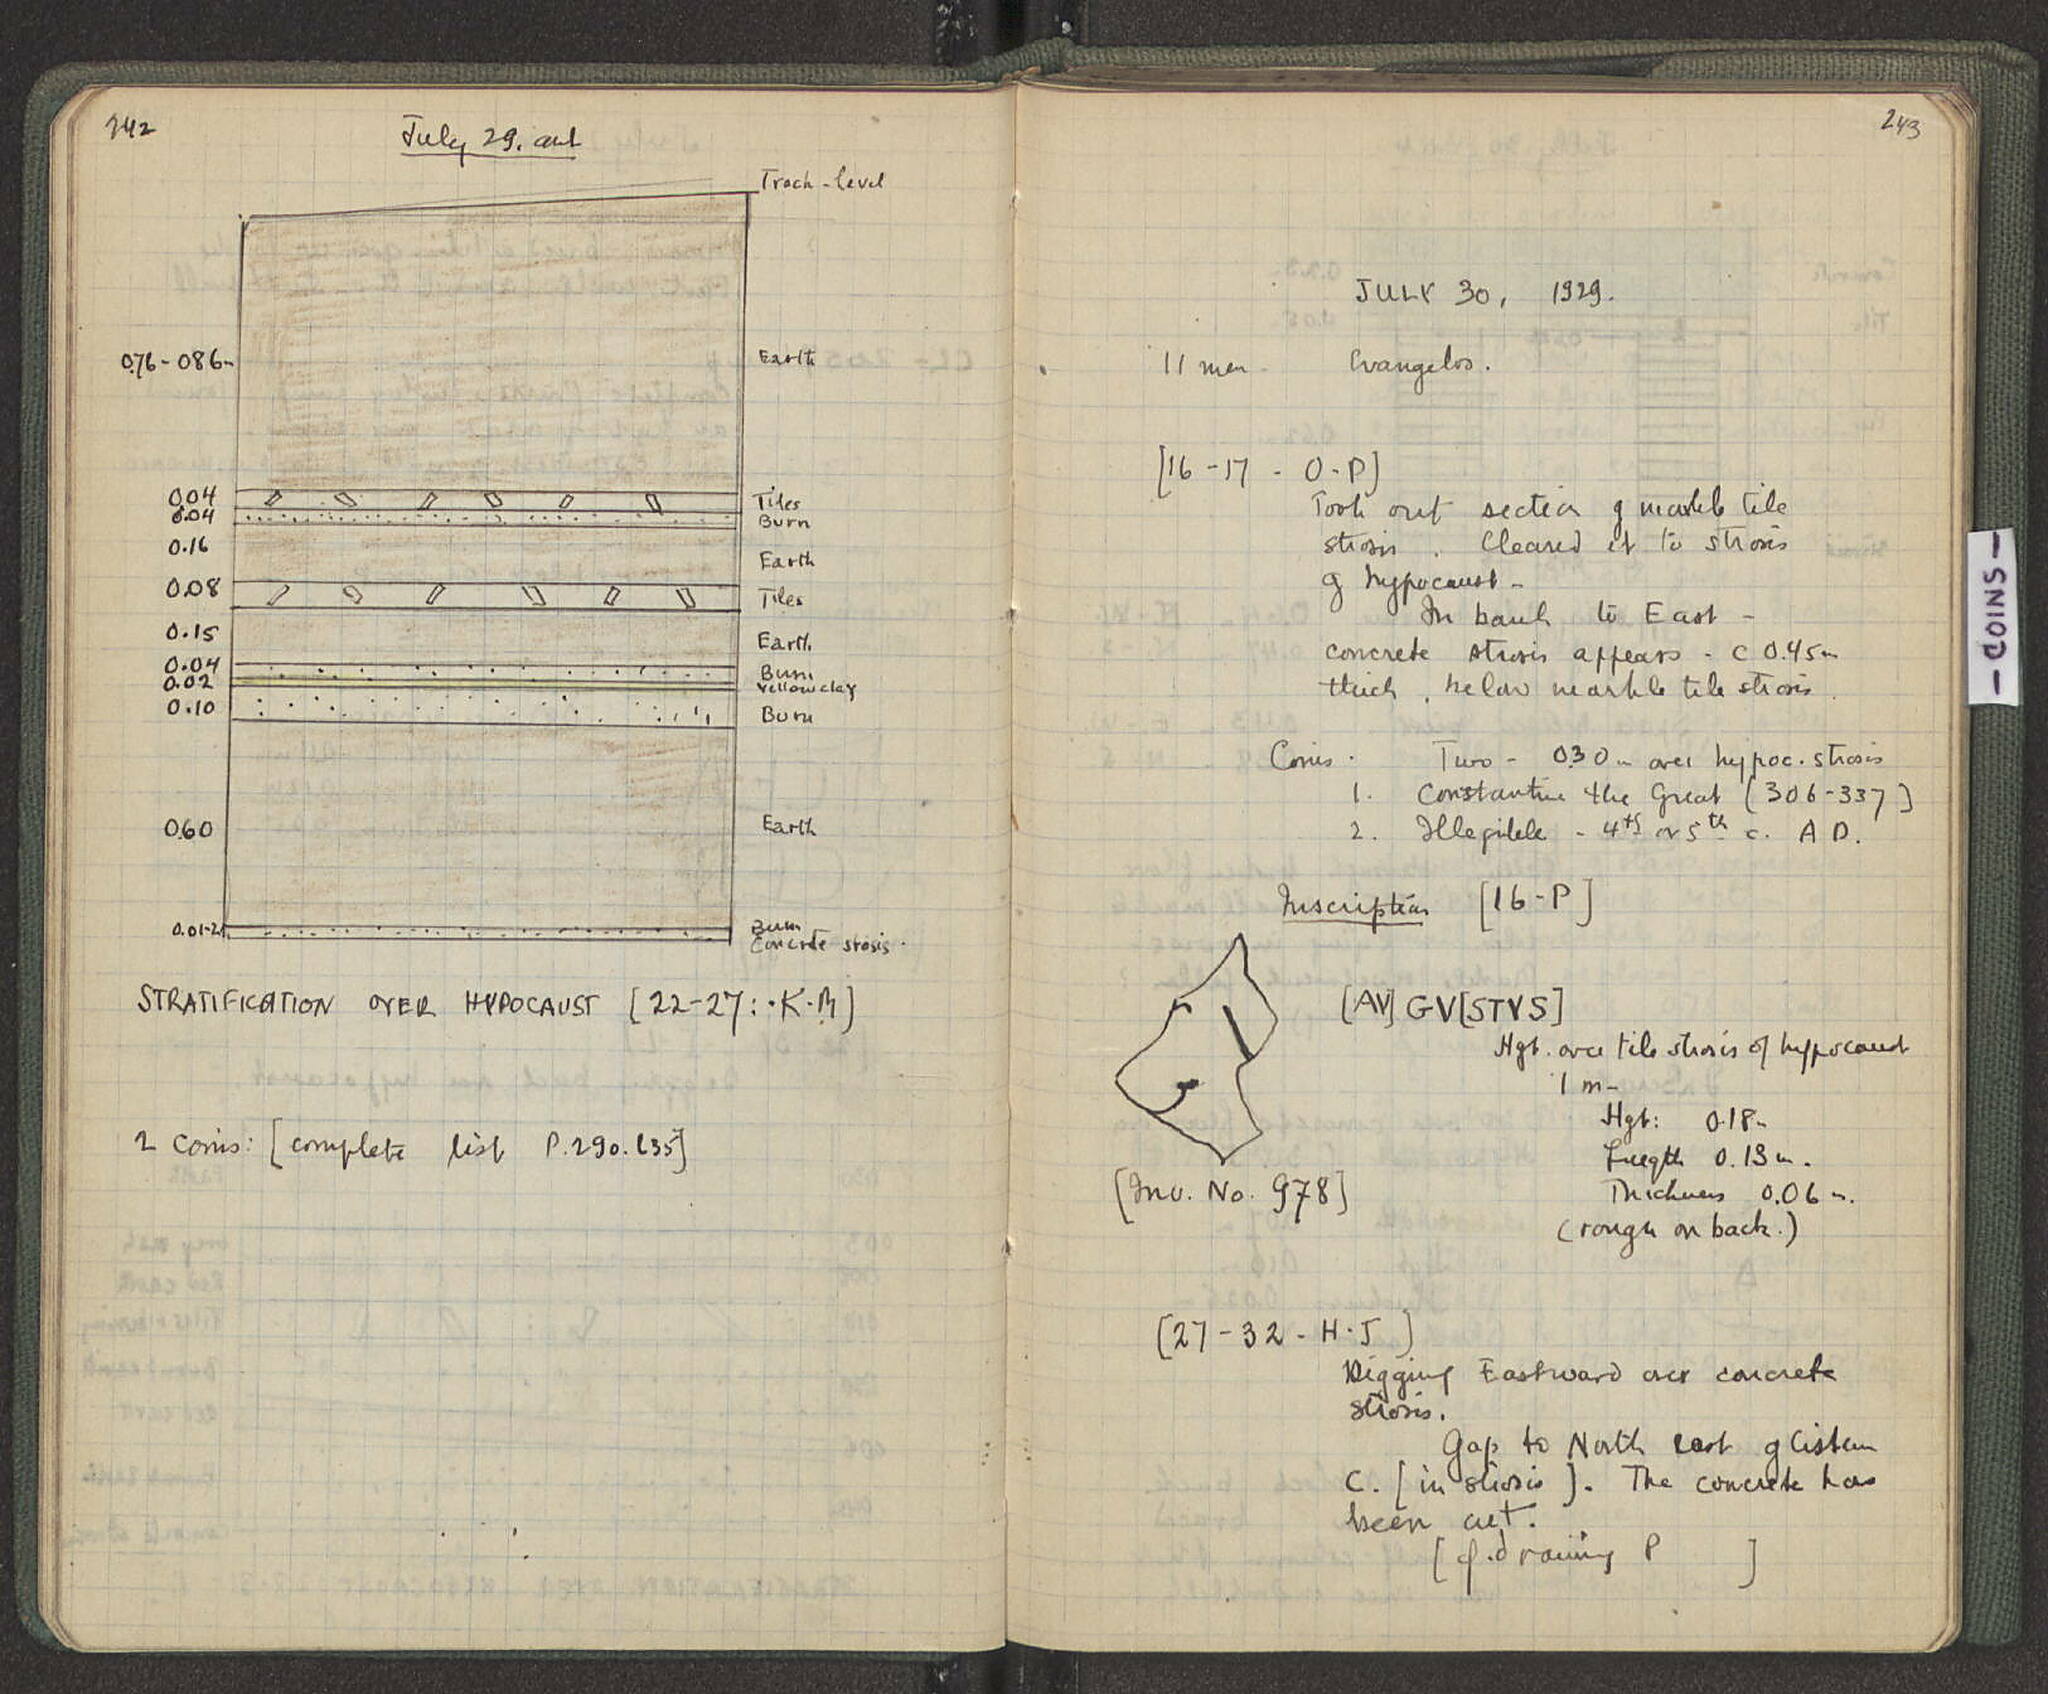 242
July 29. cont
Track-level
0.76-0.86m
Earth
0.04
Tiles
0.04
Burn
0.16
Earth
0.08
Tiles
0.15
Earth
0.04
Burn
0.02
Yellow clay
0.10
Burn
0.60
Earth
0.01-2
Burn
Concrete strosis.
STRATIFICATION OVER HYPOCAUST [22-27: K-M]
2 Coins: [complete list P.290. L35]
243
JULY 30, 1929.
11 men. Evangelos.
[16-17 - O-P]
Took out section of marble tile
strosis. Cleared it to strosis
of hypocaust -
In bank to East -
concrete strosis appears - c 0.45m
thick, below marble tile strosis.
Coins. Two - 0.30m over hypoc. strosis
1. Constantine the Great [306-337]
2. Illegible - 4th or 5th c. A D.
Inscription [16-P]
[AV]GV[STVS]
Hgt. over tile strosis of hypocaust
1 m-
Hgt: 0.18m
Length 0.13m.
Thickness 0.06m.
(rough on back.)
[Inv. No. 978]
[27-32 - H-J]
Digging Eastward over concrete
strosis.
Gap to North east of cistern
C. [in strosis]. The concrete has
been cut.
[cf. drawing P ]
- COINS -